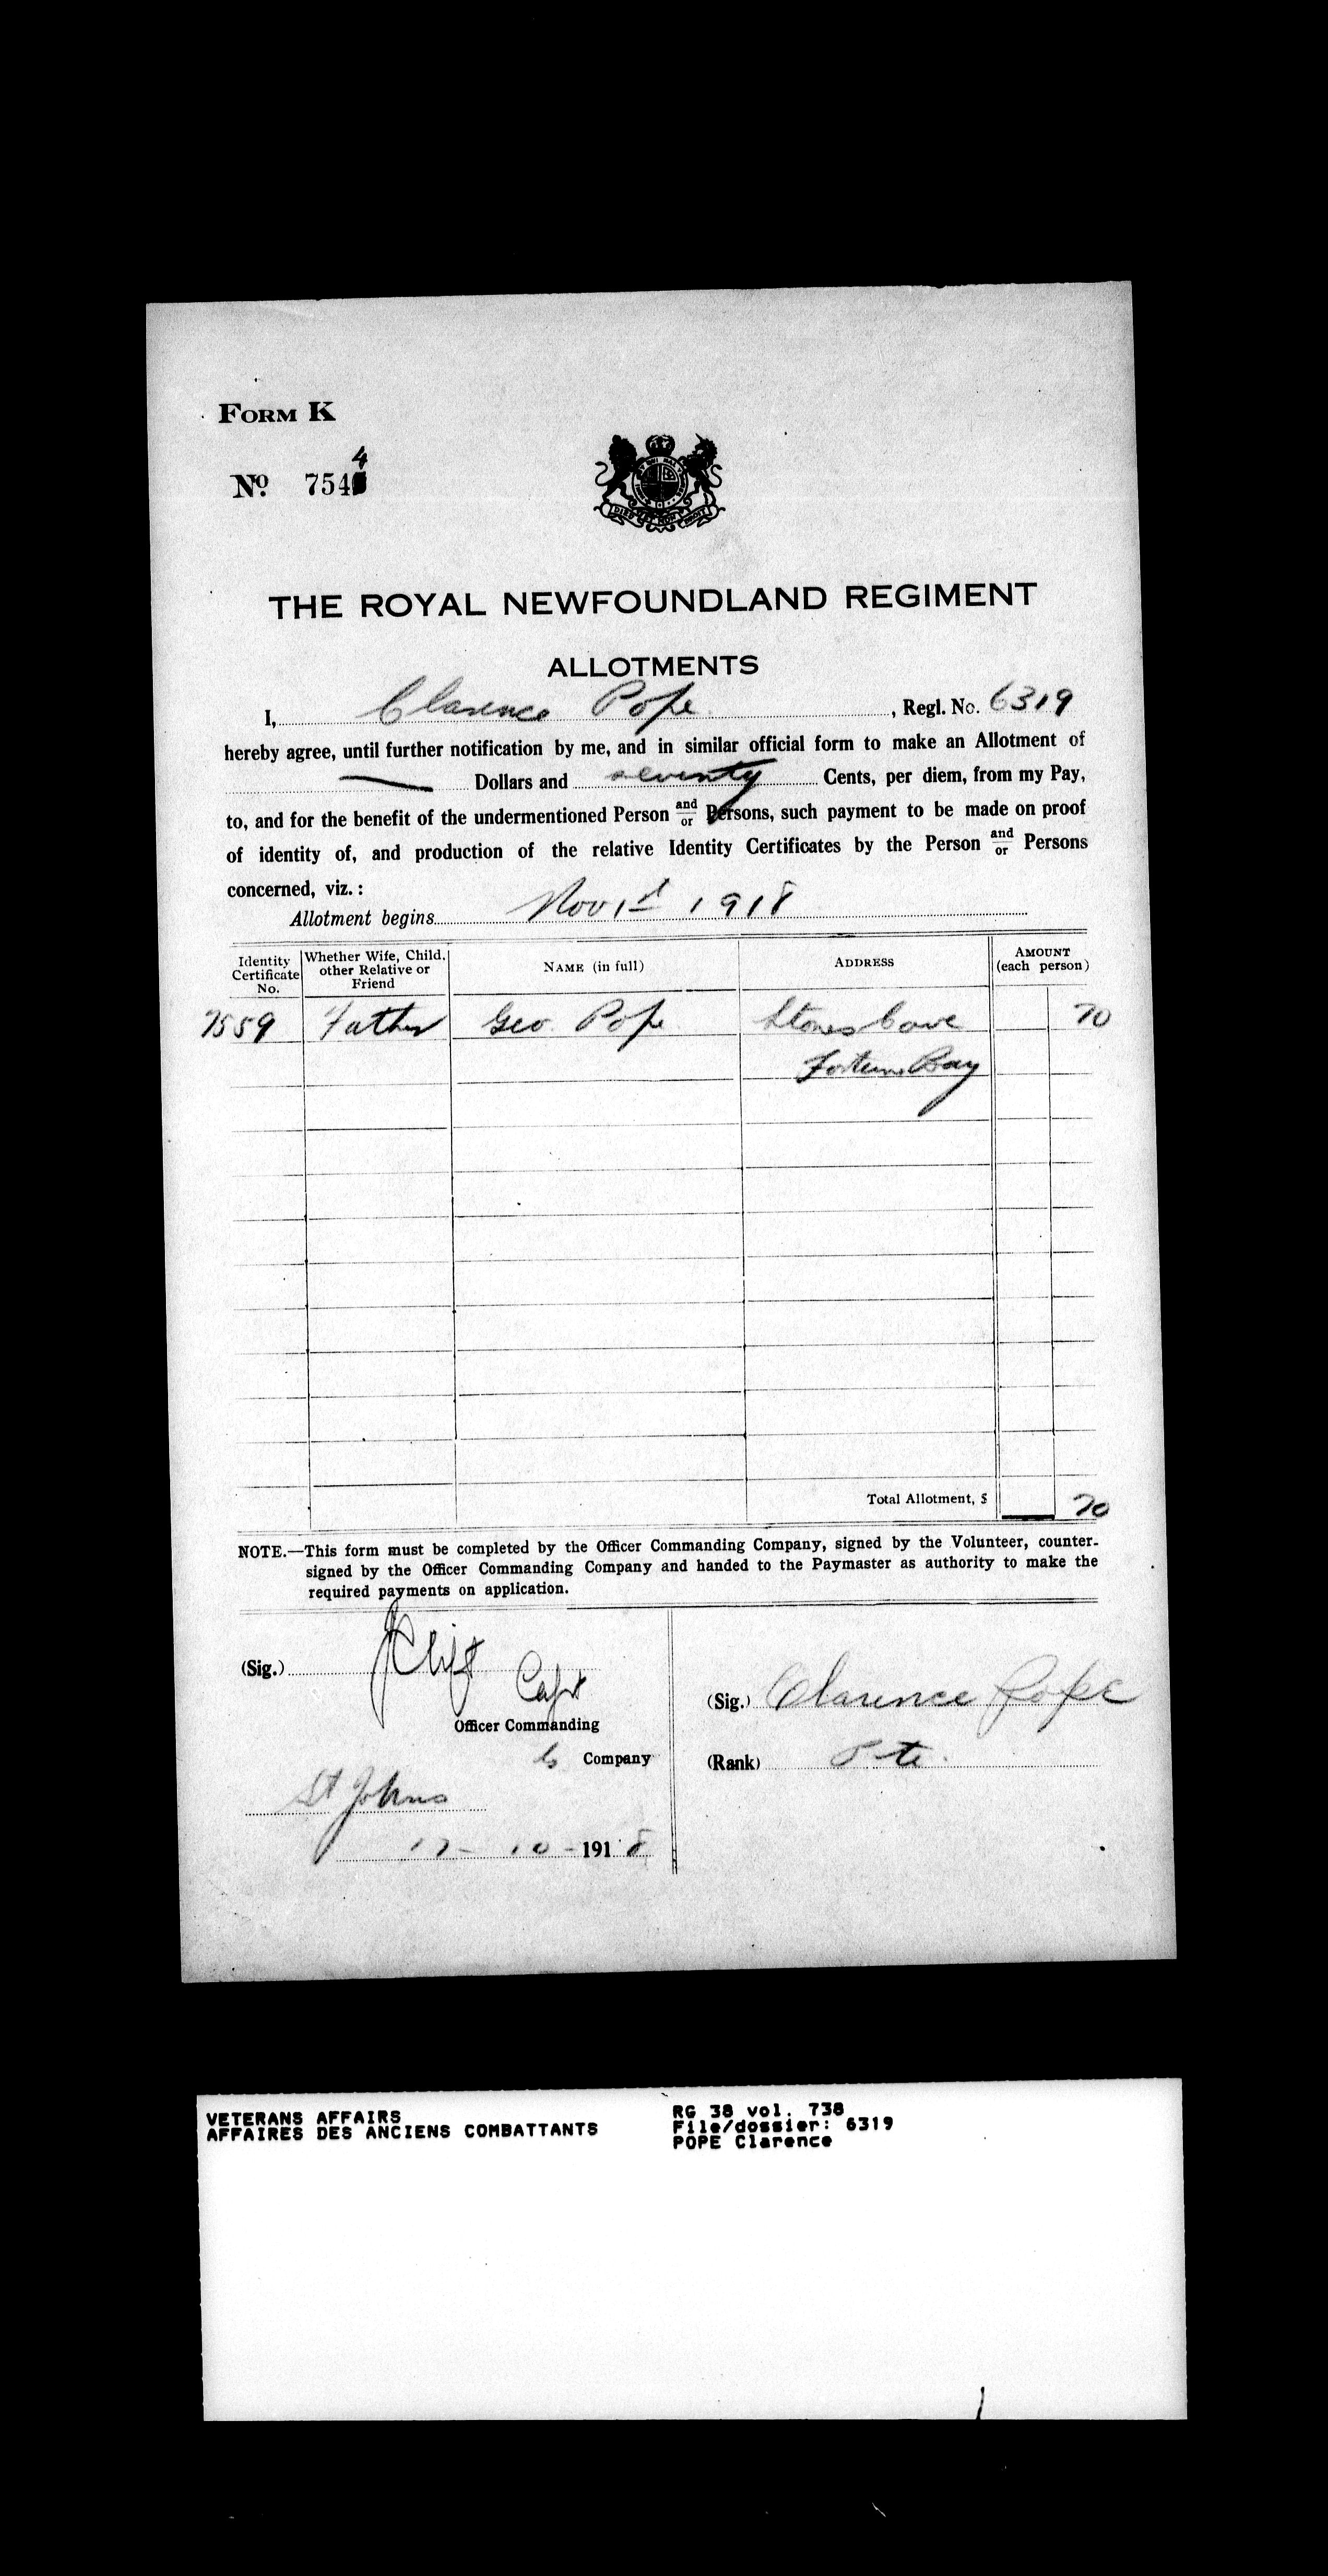 FORM K
4
No. 754
THE ROYAL NEWFOUNDLAND REGIMENT
ALLOTMENTS
I, Clarence Pope, Regl. No. 6319
hereby agree, until further notification by me, and in similar official form to make an Allotment of
— Dollars and seventy Cents, per diem, from my Pay,
to, and for the benefit of the undermentioned Person and/or Persons, such payment to be made on proof
of identity of, and production of the relative Identity Certificates by the Person and/or Persons
concerned, viz.:
Allotment begins Nov 1st 1918
Identity Certificate No. Whether Wife, Child, other Relative or Friend NAME (in full) ADDRESS AMOUNT (each person)
7559 Father Geo. Pope Stones Cove 70
Fortune Bay
Total Allotment, $ 70
NOTE.—This form must be completed by the Officer Commanding Company, signed by the Volunteer, counter-
signed by the Officer Commanding Company and handed to the Paymaster as authority to make the
required payments on application.
(Sig.) J Clift
Capt
Officer Commanding
Company
St Johns
17-10-1918
(Sig.) Clarence Pope
(Rank) Pte.
VETERANS AFFAIRS
AFFAIRES DES ANCIENS COMBATTANTS
RG 38 vol. 738
File/dossier: 6319
POPE Clarence